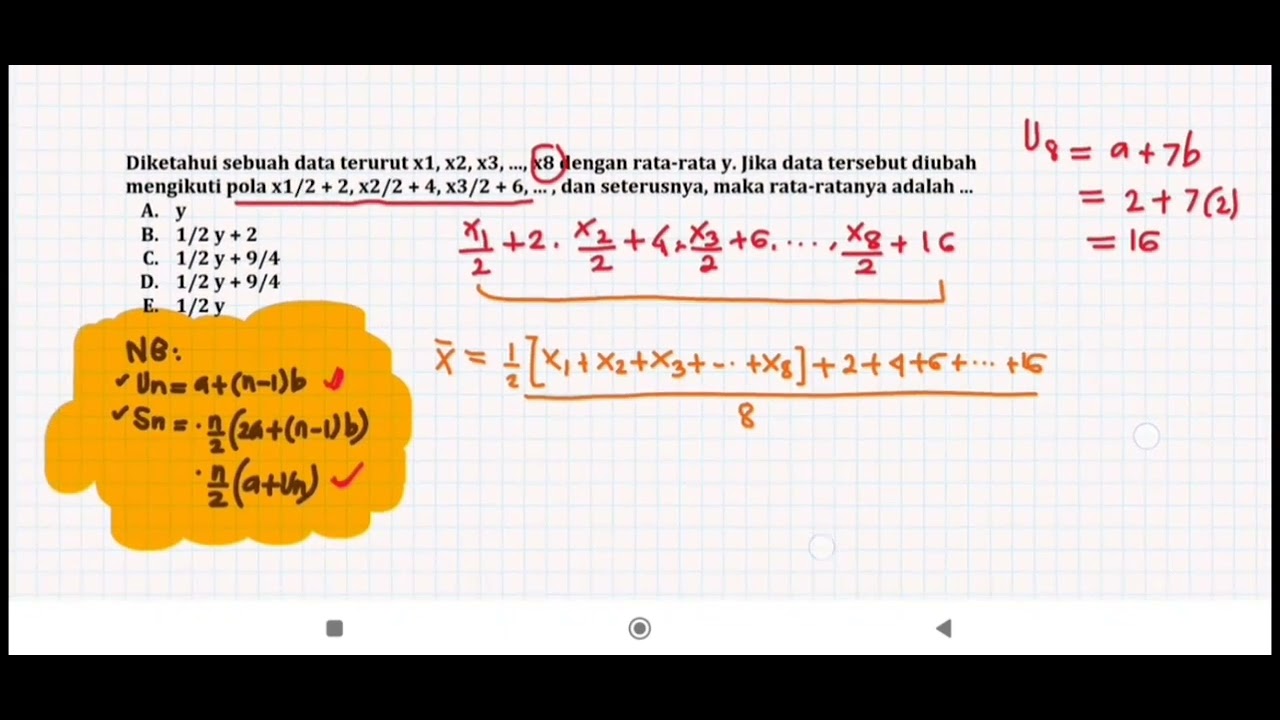 Diketahui sebuah data terurut x1, x2, x3, ..., x8 dengan rata-rata y. Jika data tersebut diubah
mengikuti pola x1/2 + 2, x2/2 + 4, x3/2 + 6, ... , dan seterusnya, maka rata-ratanya adalah ...
A. y
B. 1/2 y + 2
C. 1/2 y + 9/4
D. 1/2 y + 9/4
E. 1/2 y
x1/2 + 2. x2/2 + 4, x3/2 + 6. ...., x8/2 + 16
U8 = a + 7b
= 2 + 7(2)
= 16
NB:
✓ Un = a+(n-1)b ✓
✓ Sn = · n/2 (2a+(n-1)b)
· n/2 (a+Un) ✓
x̄ = 1/2 [x1 + x2 + x3 + ... + x8] + 2 + 4 + 6 + ... + 16
8